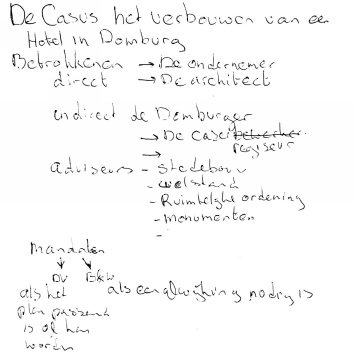 De Casus het verbouwen van een
Hotel in Domburg
Betrokkenen → De ondernemer
direct → De architect
indirect de Domburger
→ De case
regiseur
→
adviseurs - stedebouw
- welstand
- Ruimtelijke ordening
- monumenten
-
mandaten
DV B&W
als het als een afwijking nodig is
plan passend
is of kan
worden